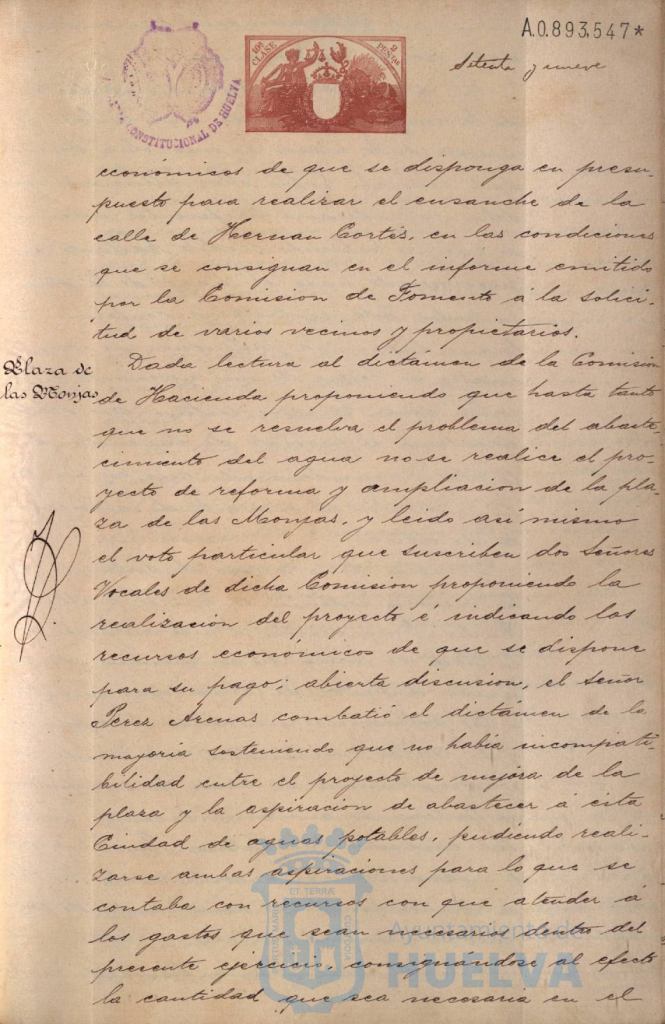 A.0.893,547*
CONSTITUCIONAL DE HUELVA
10ª CLASE
2 PESETAS
Setenta y nueve
económicos de que se disponga en presu-
puesto para realizar el ensanche de la
calle de Hernan Cortés, en las condiciones
que se consignan en el informe emitido
por la Comision de Fomento á la solici-
tud de varios vecinos y propietarios.
Plaza de
las Monjas
Dada lectura al dictámen de la Comision
de Hacienda proponiendo que hasta tanto
que no se resuelva el problema del abaste-
cimiento del agua no se realice el pro-
yecto de reforma y ampliacion de la pla-
za de las Monjas, y leido asi mismo
el voto particular que suscriben dos Señores
Vocales de dicha Comision proponiendo la
realización del proyecto é indicando los
recursos económicos de que se dispone
para su pago; abierta discusion, el Señor
Perez Arenas combatió el dictámen de la
mayoria sosteniendo que no habia incompati-
bilidad entre el proyecto de mejora de la
plaza y la aspiracion de abastecer á esta
Ciudad de aguas potables, pudiendo reali-
zarse ambas aspiraciones para lo que se
contaba con recursos con que atender á
los gastos que sean necesarios dentro del
presente ejercicio, consignandose al efecto
la cantidad que sea necesaria en el
ET TERRÆ
CUSTODIA
Ayuntamiento de
HUELVA